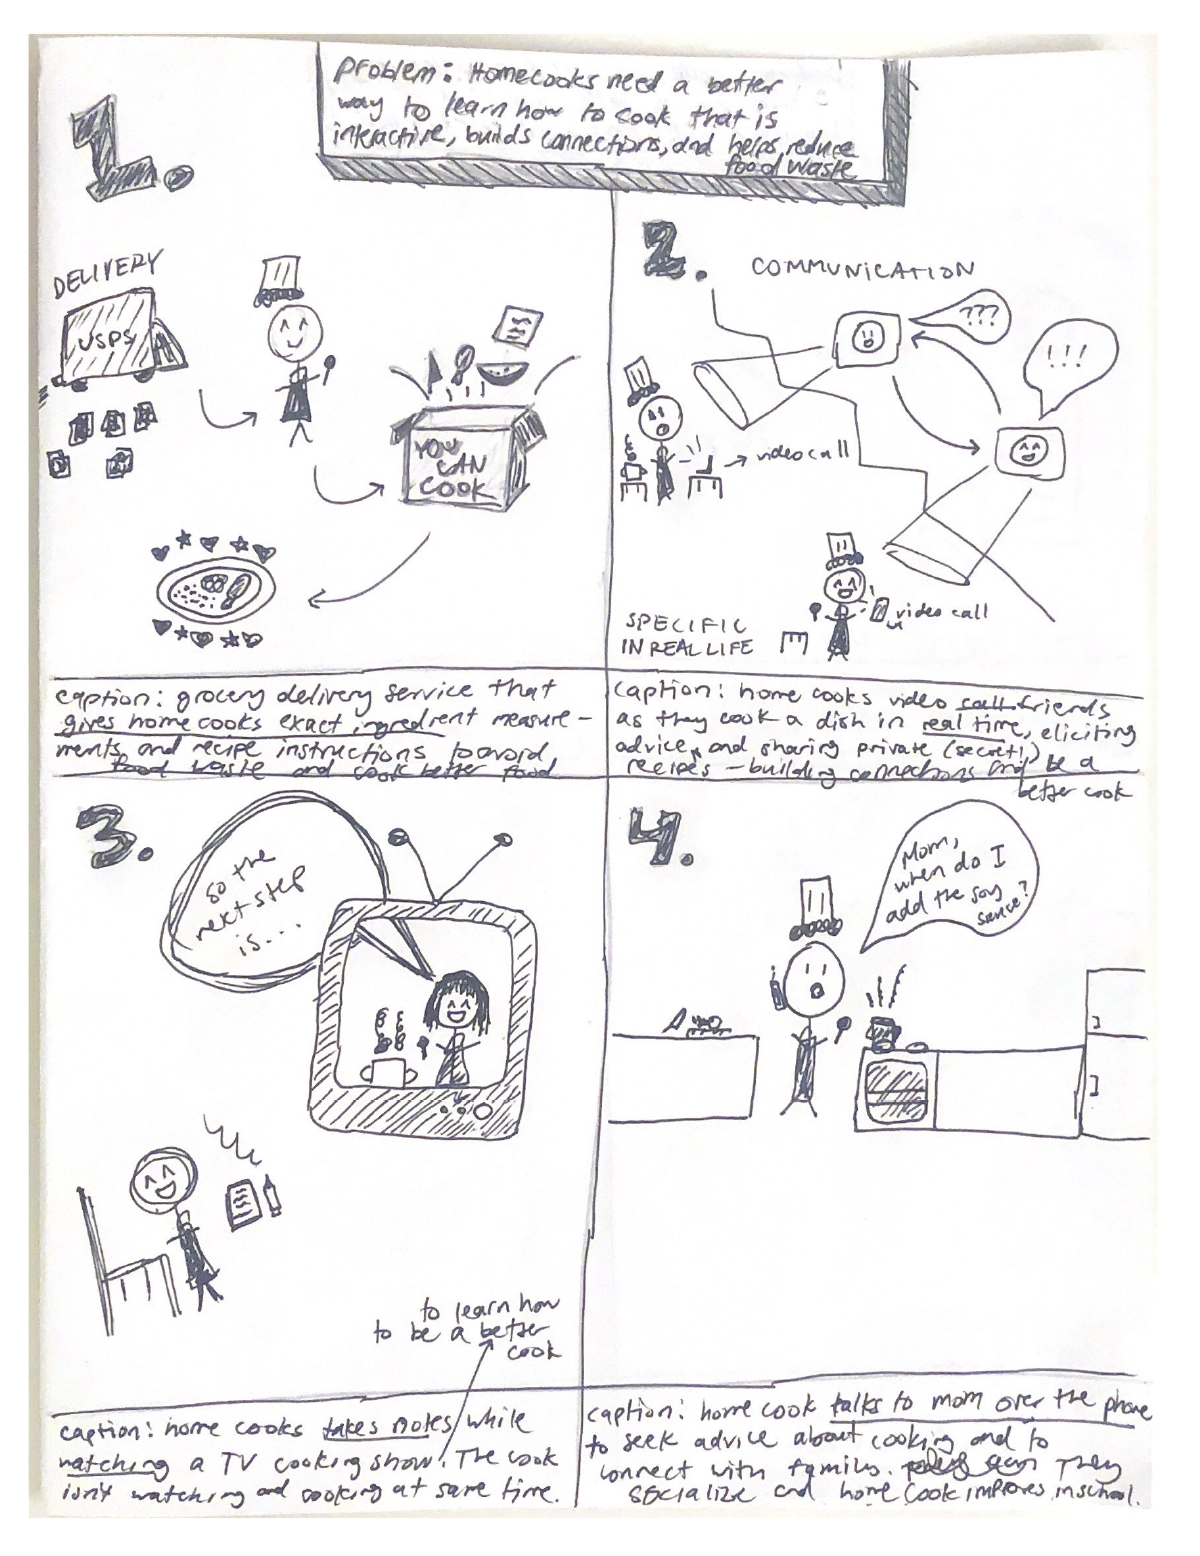 Problem: Homecooks need a better
way to learn how to cook that is
interactive, builds connections, and helps reduce
food waste
1.
DELIVERY
USPS
YOU
CAN
COOK
caption: grocery delivery service that
gives home cooks exact ingredient measure-
ments and recipe instructions to avoid
food waste and cook better food
2.
COMMUNICATION
???
!!!
→ video call
video call
SPECIFIC
IN REAL LIFE
caption: home cooks video call friends
as they cook a dish in real time, eliciting
advice, and sharing private (secret!)
recipes – building connections and be a
better cook
3.
so the
next step
is...
to learn how
to be a better
cook
caption: home cooks takes notes while
watching a TV cooking show. The cook
isn't watching and cooking at same time.
4.
Mom,
when do I
add the soy
sauce?
caption: home cook talks to mom over the phone
to seek advice about cooking and to
connect with family. They
socialize and home cook improves in school.